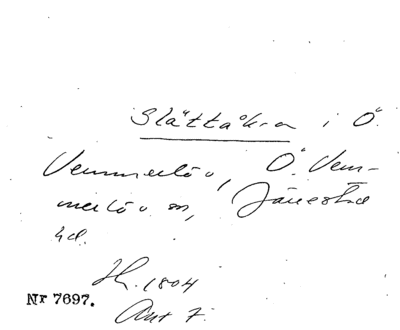 Slättåkra i Ö.
Vemmerlöv, Ö. Vem-
merlöv sn, Järrestad
hd.
Hk. 1804
Nr 7697.
Akt 7.